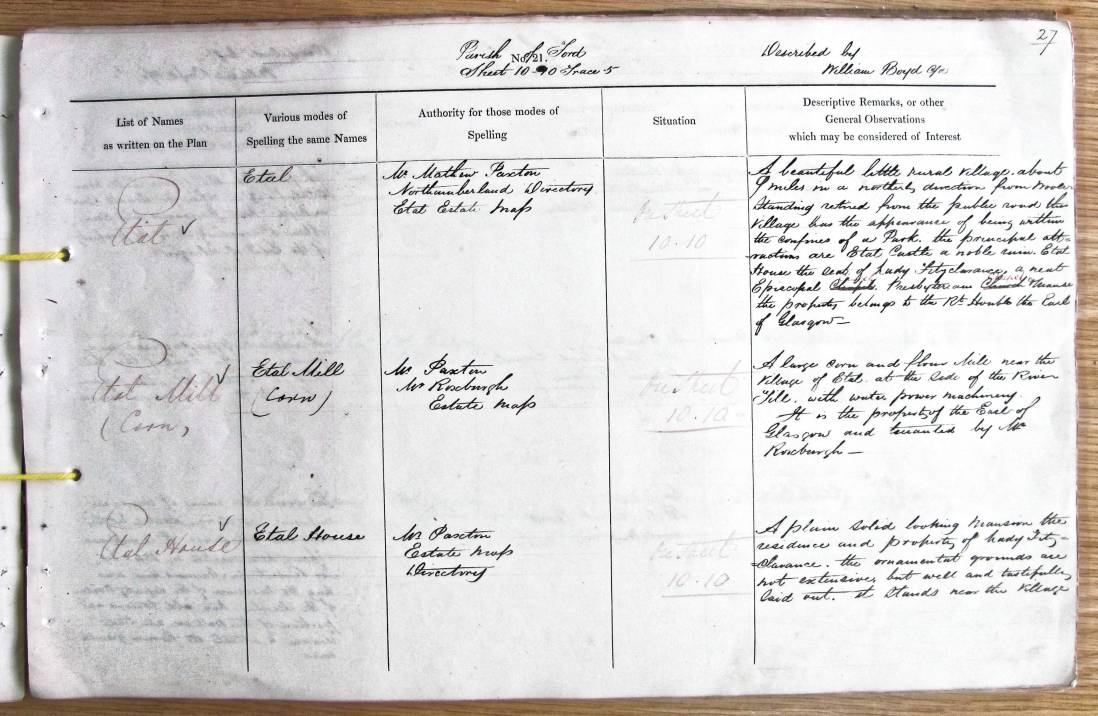 27
Parish of Ford
No. 21.
Sheet 10 Trace 5
Described by
William Boyd c/a
List of Names
as written on the Plan
Various modes of
Spelling the same Names
Authority for those modes of
Spelling
Situation
Descriptive Remarks, or other
General Observations
which may be considered of Interest
Etal
Etal
Mr. Mathew Paxton
Northumberland Directory
Etal Estate Map
On Sheet
10.10
A beautiful little rural Village. about
9 miles in a northerly direction from Wooler
Standing retired from the public road this
Village has the appearance of being within
the confines of a Park. the principal att-
ractions are Etal Castle a noble ruin. Etal
House the seat of Lady Fitzclarance, a neat
Episcopal Chapel. Presbyterian Church & Manse
the property belongs to the Rt. Honble the Earl
of Glasgow—
Etal Mill
(Corn)
Etal Mill
(Corn)
Mr. Paxton
Mr. Roxburgh
Estate Map
On Sheet
10.10
A large Corn and flour Mill near the
Village of Etal. at the side of the River
Till. with water power machinery.
It is the property of the Earl of
Glasgow and tenanted by Mr.
Roxburgh—
Etal House
Etal House
Mr. Paxton
Estate Map
Directory
On Sheet
10.10
A plain solid looking Mansion the
residence and property of Lady Fitz-
clarance. the ornamental grounds are
not extensive, but well and tastefully
laid out. it stands near the Village